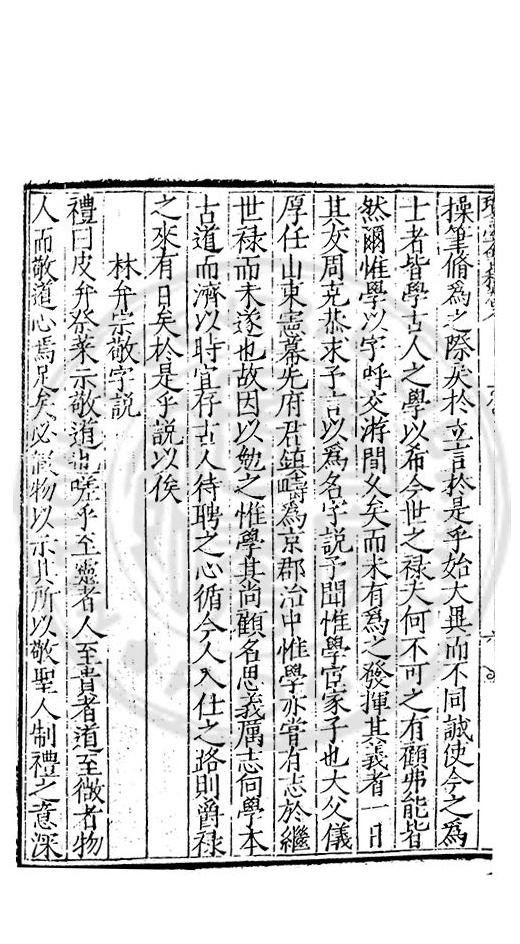 操筆脩為之際矣於立言於是乎始大異而不同誠使今之為
士者皆學古人之學以希今世之祿夫何不可之有顧弗能皆
然爾惟學以字呼交游間久矣而未有為之發揮其義者一日
其友周克恭求予言以為名字說予聞惟學宦家子也大父儀
厚任山東憲幕先府君鎮疇為京郡治中惟學亦嘗有志於繼
世祿而未遂也故因以勉之惟學其尚顧名思義厲志向學本
古道而濟以時宜存古人待聘之心循今人入仕之路則爵祿
之來有日矣於是乎說以俟
林弁宗敬字說
禮曰皮弁祭菜示敬道也嗟乎至靈者人至貴者道至微者物
人而敬道心焉足矣必假物以示其所以敬聖人制禮之意深